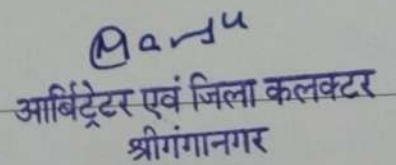 Manju
आर्बिट्रेटर एवं जिला कलक्टर
श्रीगंगानगर